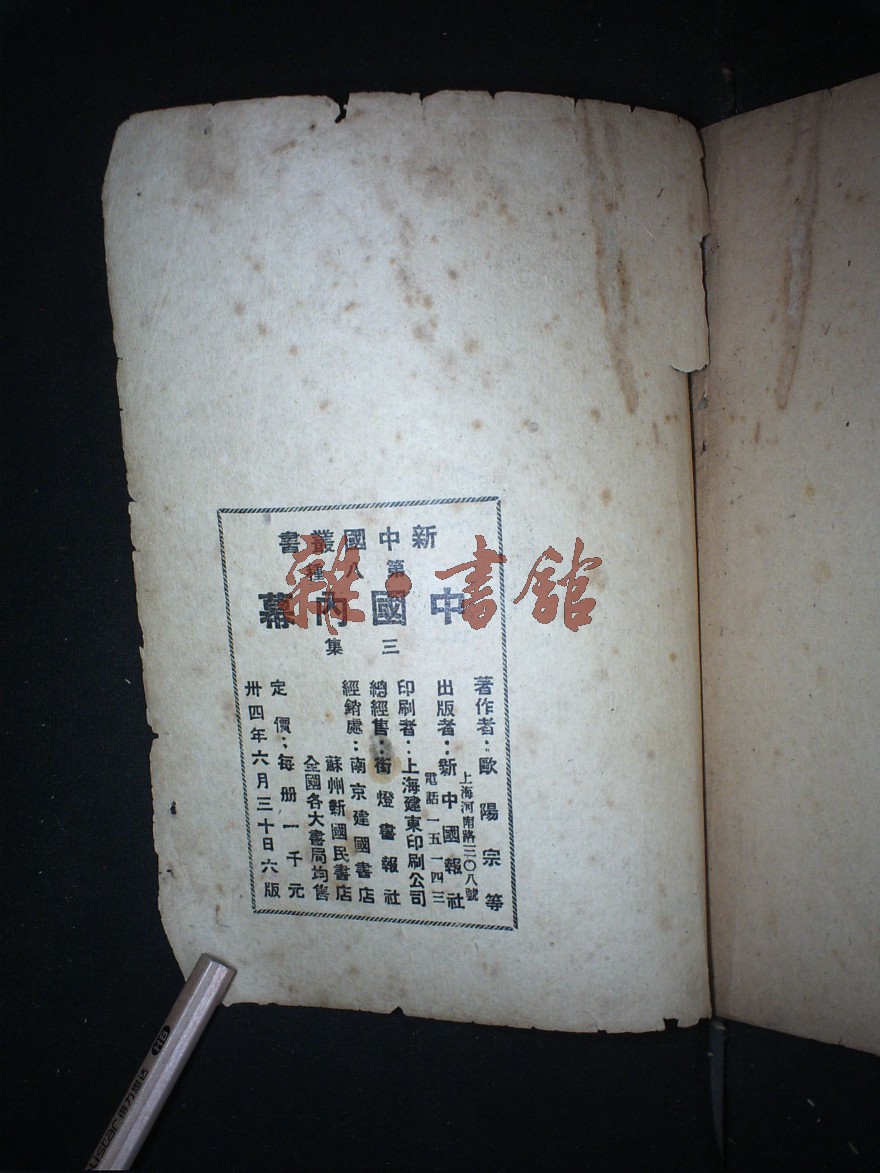 新中國叢書
第八種
中國內幕
三集
著作者：歐陽宗等
上海河南路三〇八號
出版者：新中國報社
電話一五一四三
印刷者：上海建東印刷公司
總經售：街燈書報社
經銷處：南京建國書店
蘇州新國民書店
全國各大書局均售
定價：每册一千元
卅四年六月三十日六版
雜·書館
HB